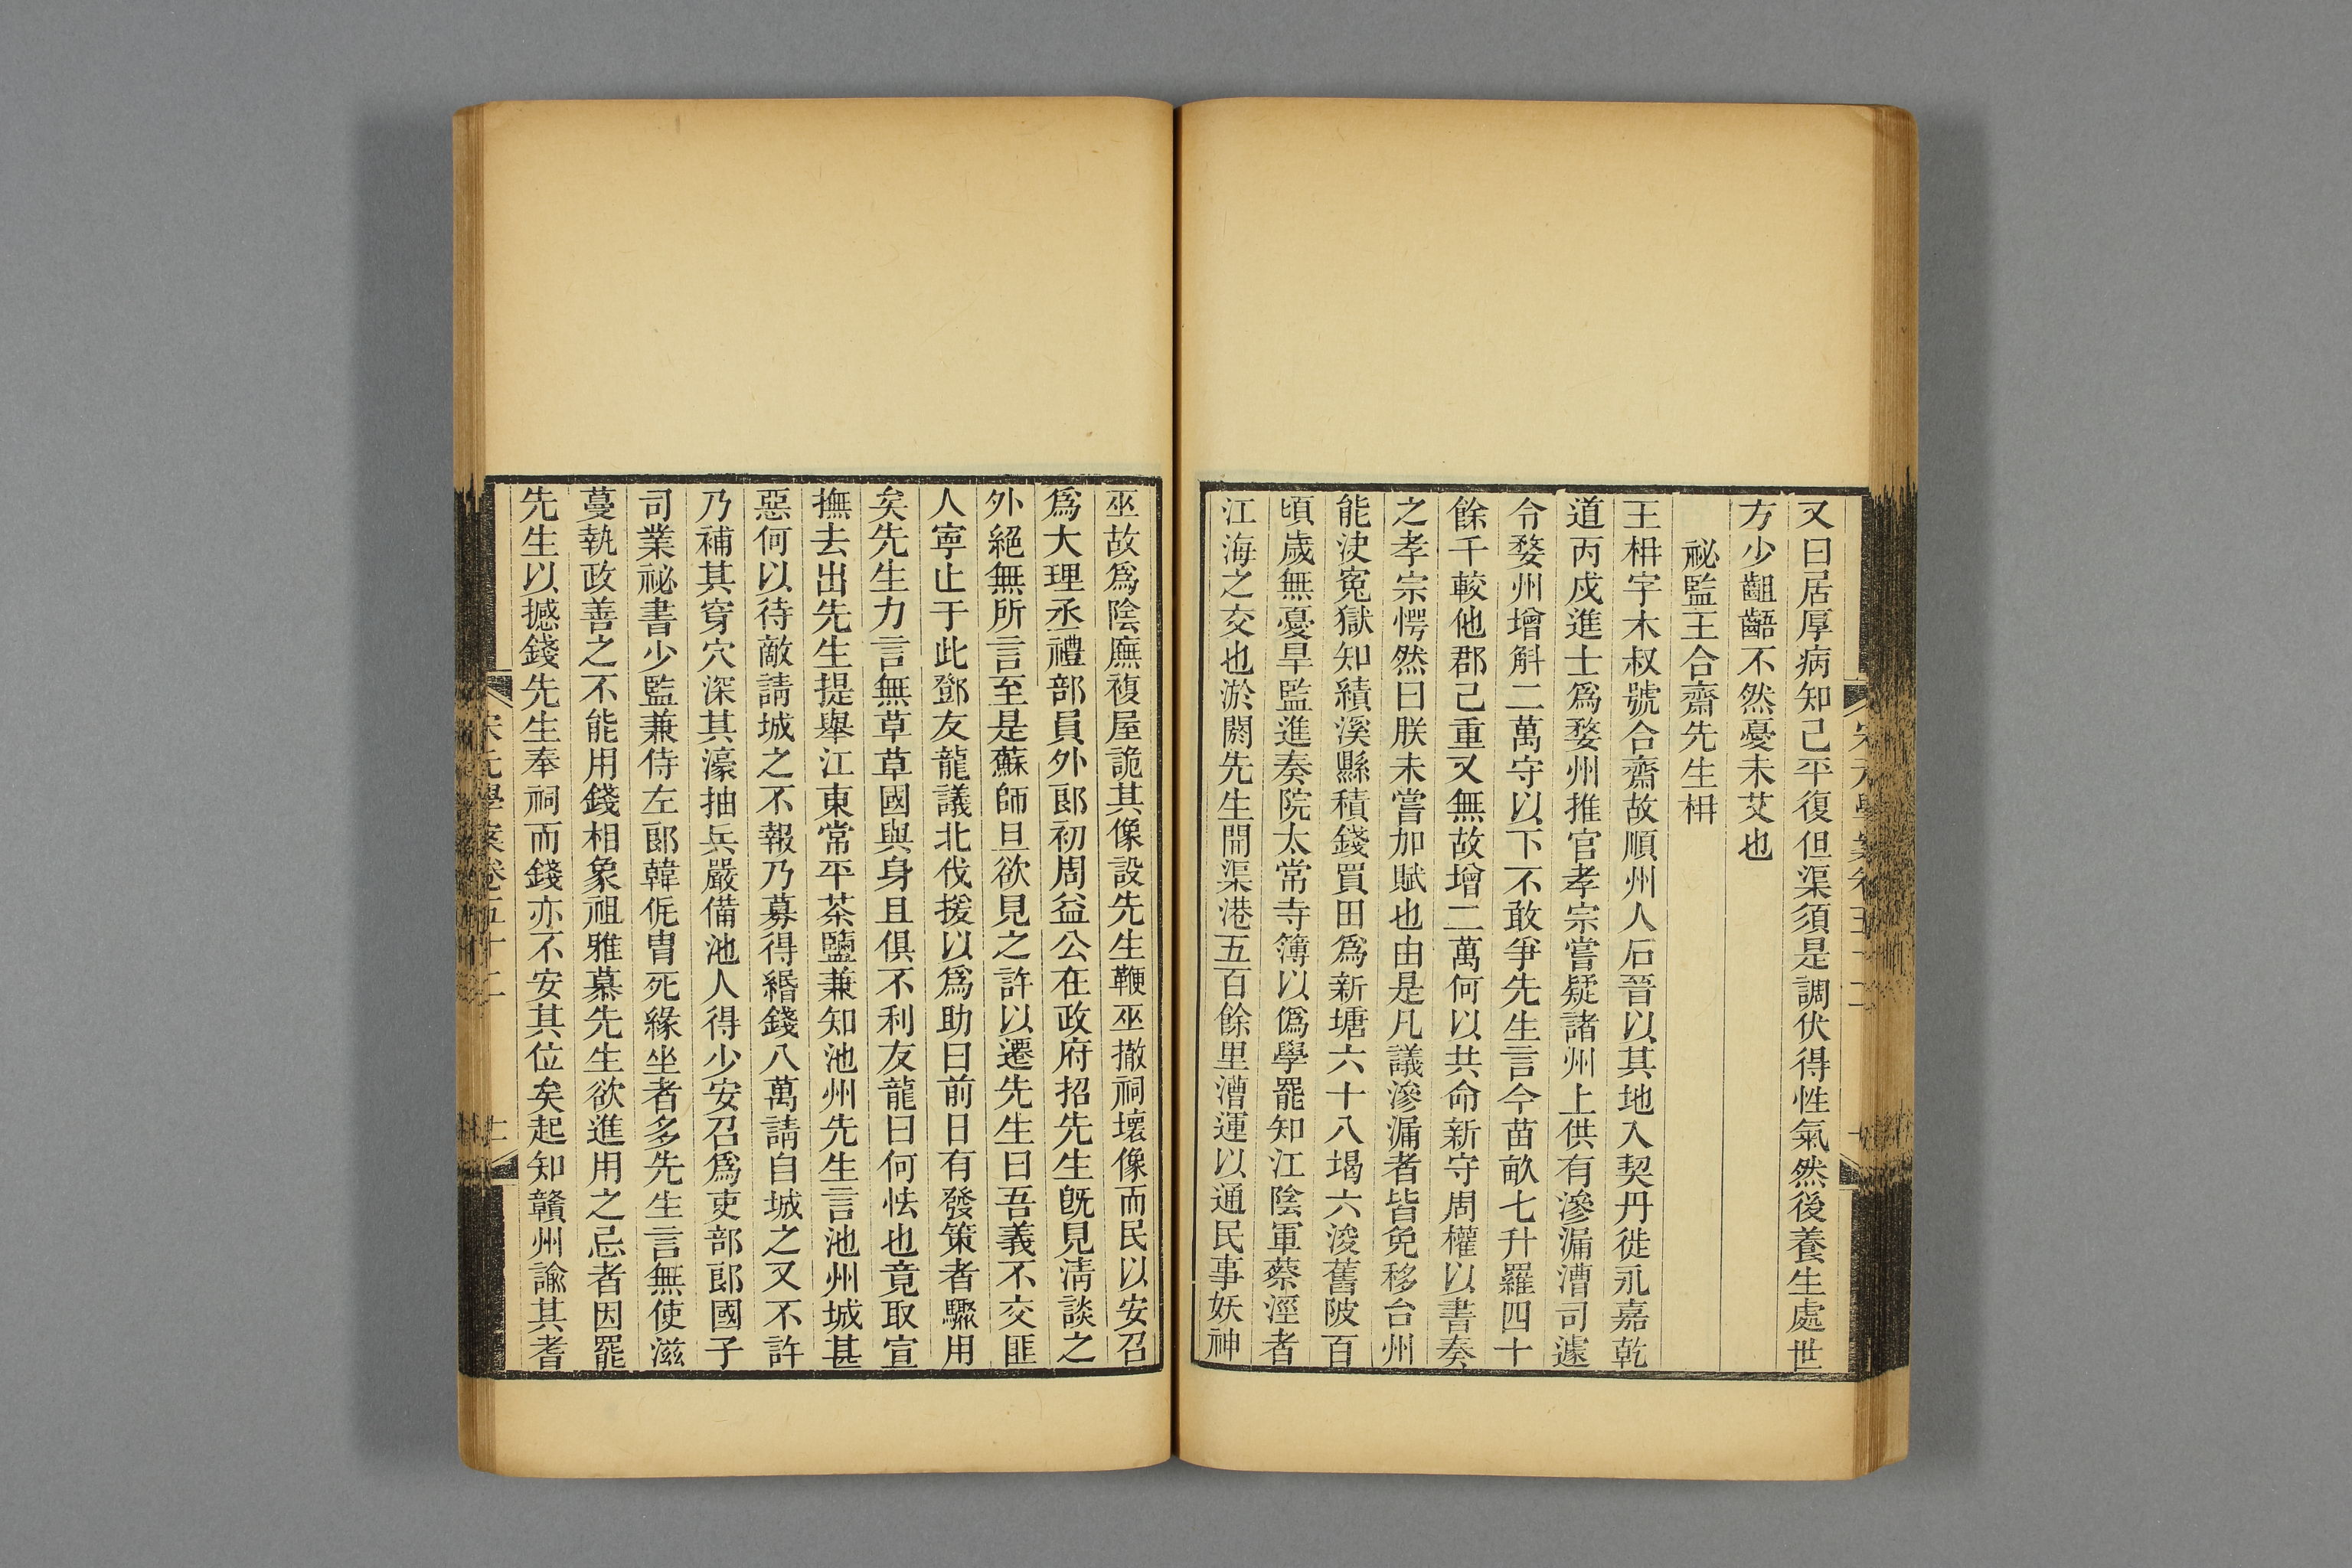 又曰居厚病知己平復但渠須是調伏得性氣然後養生處世
方少齟齬不然憂未艾也
祕監王合齋先生枏
王枏字木叔號合齋故順州人石晉以其地入契丹徙永嘉乾
道丙戌進士爲婺州推官孝宗嘗疑諸州上供有滲漏漕司遽
令婺州增斛二萬守以下不敢爭先生言今苗畝七升羅四十
餘千較他郡己重又無故增二萬何以共命新守周權以書奏
之孝宗愕然曰朕未嘗加賦也由是凡議滲漏者皆免移台州
能決寃獄知績溪縣積錢買田爲新塘六十八堨六浚舊陂百
頃歲無憂旱監進奏院太常寺簿以僞學罷知江陰軍蔡涇者
江海之交也淤閼先生開渠港五百餘里漕運以通民事妖神
巫故爲陰廡複屋詭其像設先生鞭巫撤祠壞像而民以安召
爲大理丞禮部員外郎初周益公在政府招先生旣見淸談之
外絕無所言至是蘇師旦欲見之許以遷先生曰吾義不交匪
人寧止于此鄧友龍議北伐援以爲助曰前日有發策者驟用
矣先生力言無草草國與身且俱不利友龍曰何怯也竟取宣
撫去出先生提舉江東常平茶鹽兼知池州先生言池州城甚
惡何以待敵請城之不報乃募得緡錢八萬請自城之又不許
乃補其穿穴深其濠抽兵嚴備池人得少安召爲吏部郎國子
司業祕書少監兼侍左郎韓侂冑死緣坐者多先生言無使滋
蔓執政善之不能用錢相象祖雅慕先生欲進用之忌者因罷
先生以撼錢先生奉祠而錢亦不安其位矣起知贛州諭其耆
宋元學案卷五十二